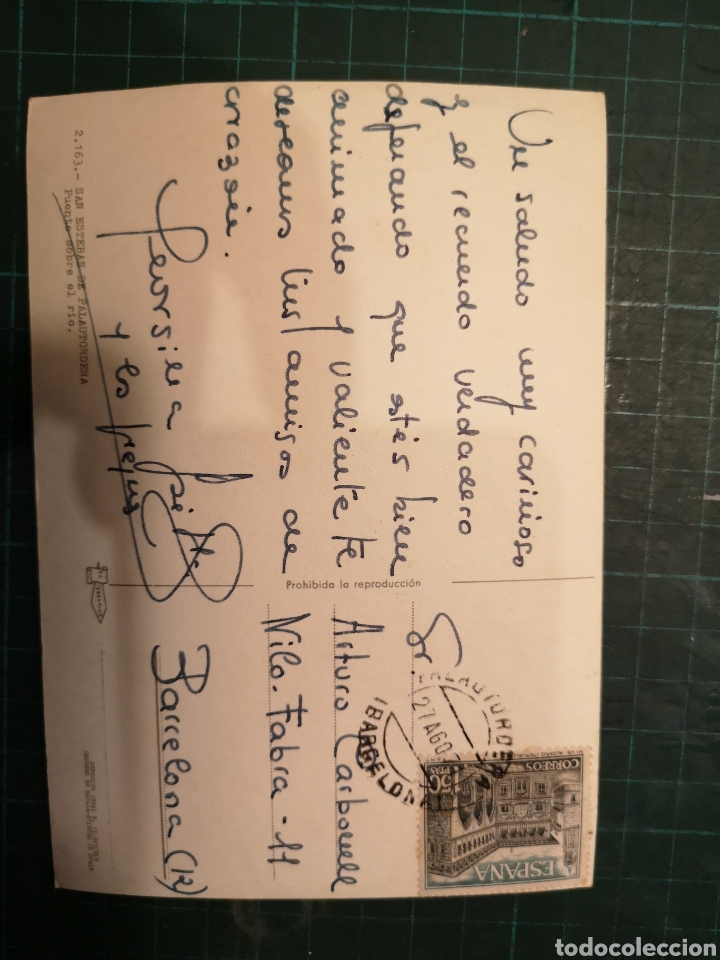 Un saludo muy cariñoso
y el recuerdo verdadero
deseando que estés bien
animado y valiente te
deseamos tus amigos de
corazón.
y los peques
2.163.- SAN ESTEBAN DE PALAUTORDERA
Puente sobre el rio.
Prohibida la reproducción
Sr.
Arturo Carbonell
Nilo-Fabra-11
Barcelona (12)
27 AGO
(BARCELONA)
CORREOS
PTAS
ESPAÑA
todocoleccion
todocoleccion.net